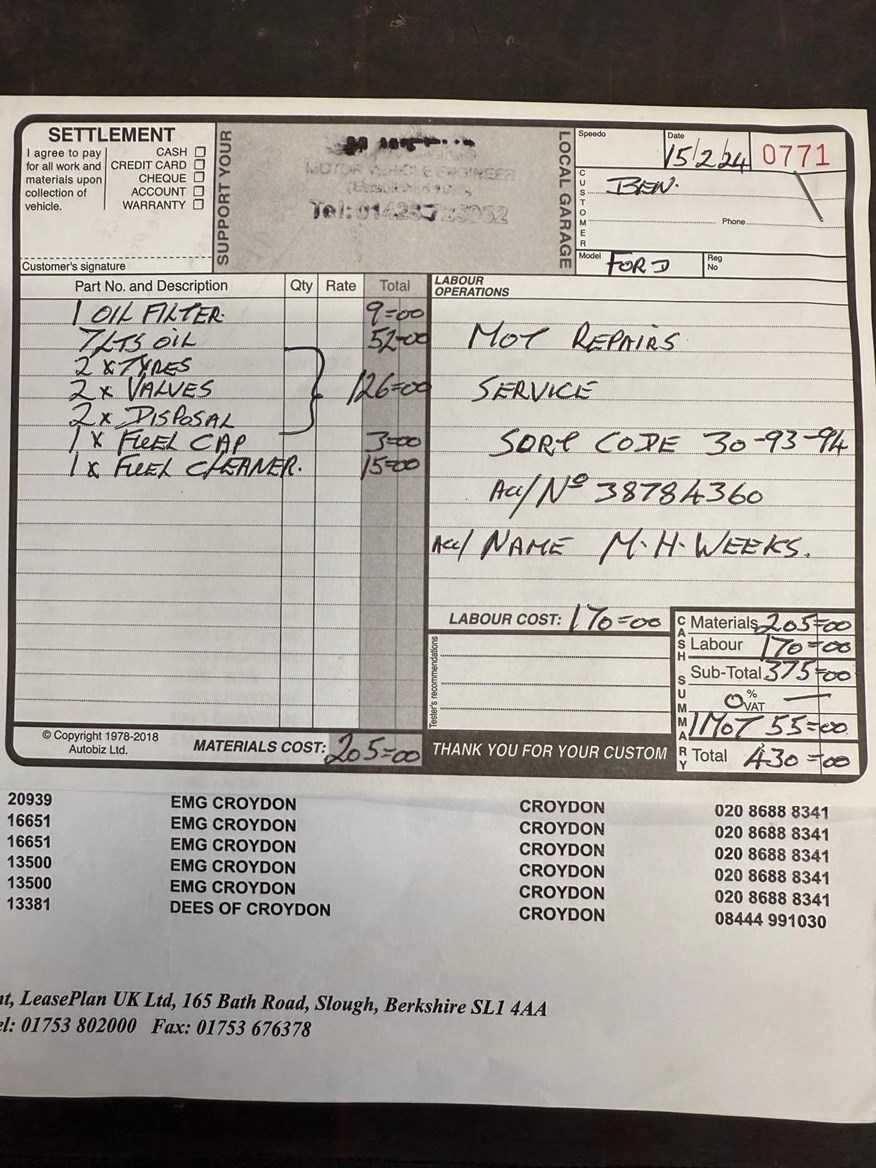 SETTLEMENT
I agree to pay for all work and materials upon collection of vehicle.
CASH
CREDIT CARD
CHEQUE
ACCOUNT
WARRANTY
Customer's signature
SUPPORT YOUR
MOTOR VEHICLE ENGINEER
Tel:
LOCAL GARAGE
Speedo
Date 15/2/24
0771
CUSTOMER
BEN.
Phone
Model FORD
Reg No
Part No. and Description Qty Rate Total
1 OIL FILTER. 9=00
7 LTS OIL 52=00
2 x TYRES
2 x VALVES 126=00
2 x DISPOSAL
1 x FUEL CAP 3=00
1 x FUEL CLEANER. 15=00
© Copyright 1978-2018
Autobiz Ltd.
MATERIALS COST: 205=00
LABOUR OPERATIONS
MOT REPAIRS
SERVICE
SORT CODE 30-93-94
Acc/Nº 38784360
Acc/ NAME M.H.WEEKS.
LABOUR COST: 170=00
Tester's recommendations
THANK YOU FOR YOUR CUSTOM
CASH SUMMARY
Materials 205=00
Labour 170=00
Sub-Total 375=00
0 % VAT —
1 MOT 55=00
Total 430=00
20939 EMG CROYDON CROYDON 020 8688 8341
16651 EMG CROYDON CROYDON 020 8688 8341
16651 EMG CROYDON CROYDON 020 8688 8341
13500 EMG CROYDON CROYDON 020 8688 8341
13500 EMG CROYDON CROYDON 020 8688 8341
13381 DEES OF CROYDON CROYDON 08444 991030
LeasePlan UK Ltd, 165 Bath Road, Slough, Berkshire SL1 4AA
el: 01753 802000 Fax: 01753 676378